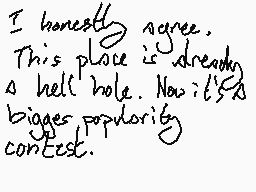 I honestly agree.
This place is already
a hell hole. Now it's a
bigger popularity
contest.